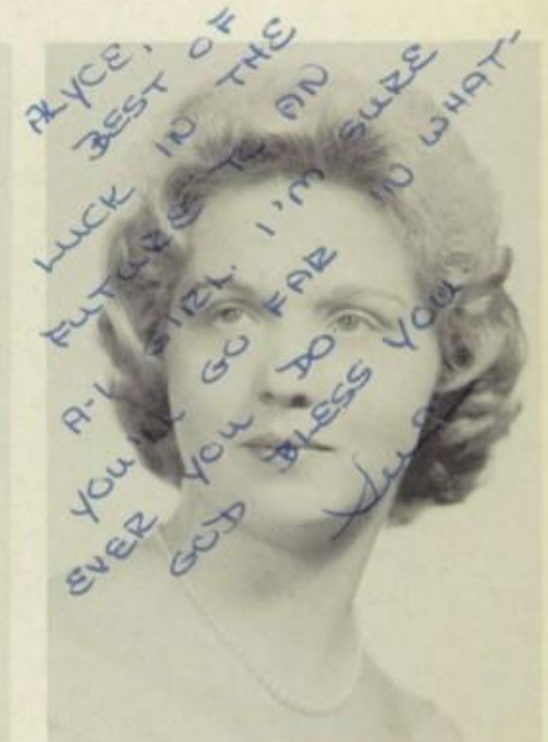 ALYCE,
BEST OF
LUCK IN THE
FUTURE TO AN
A-1 GIRL. I'M SURE
YOU'LL GO FAR IN WHAT-
EVER YOU DO
GOD BLESS YOU